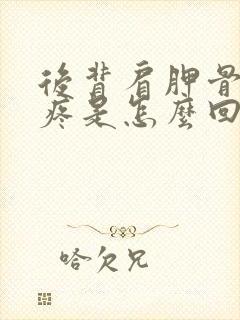 後背肩胛骨
疼是怎麼回
哈欠兄